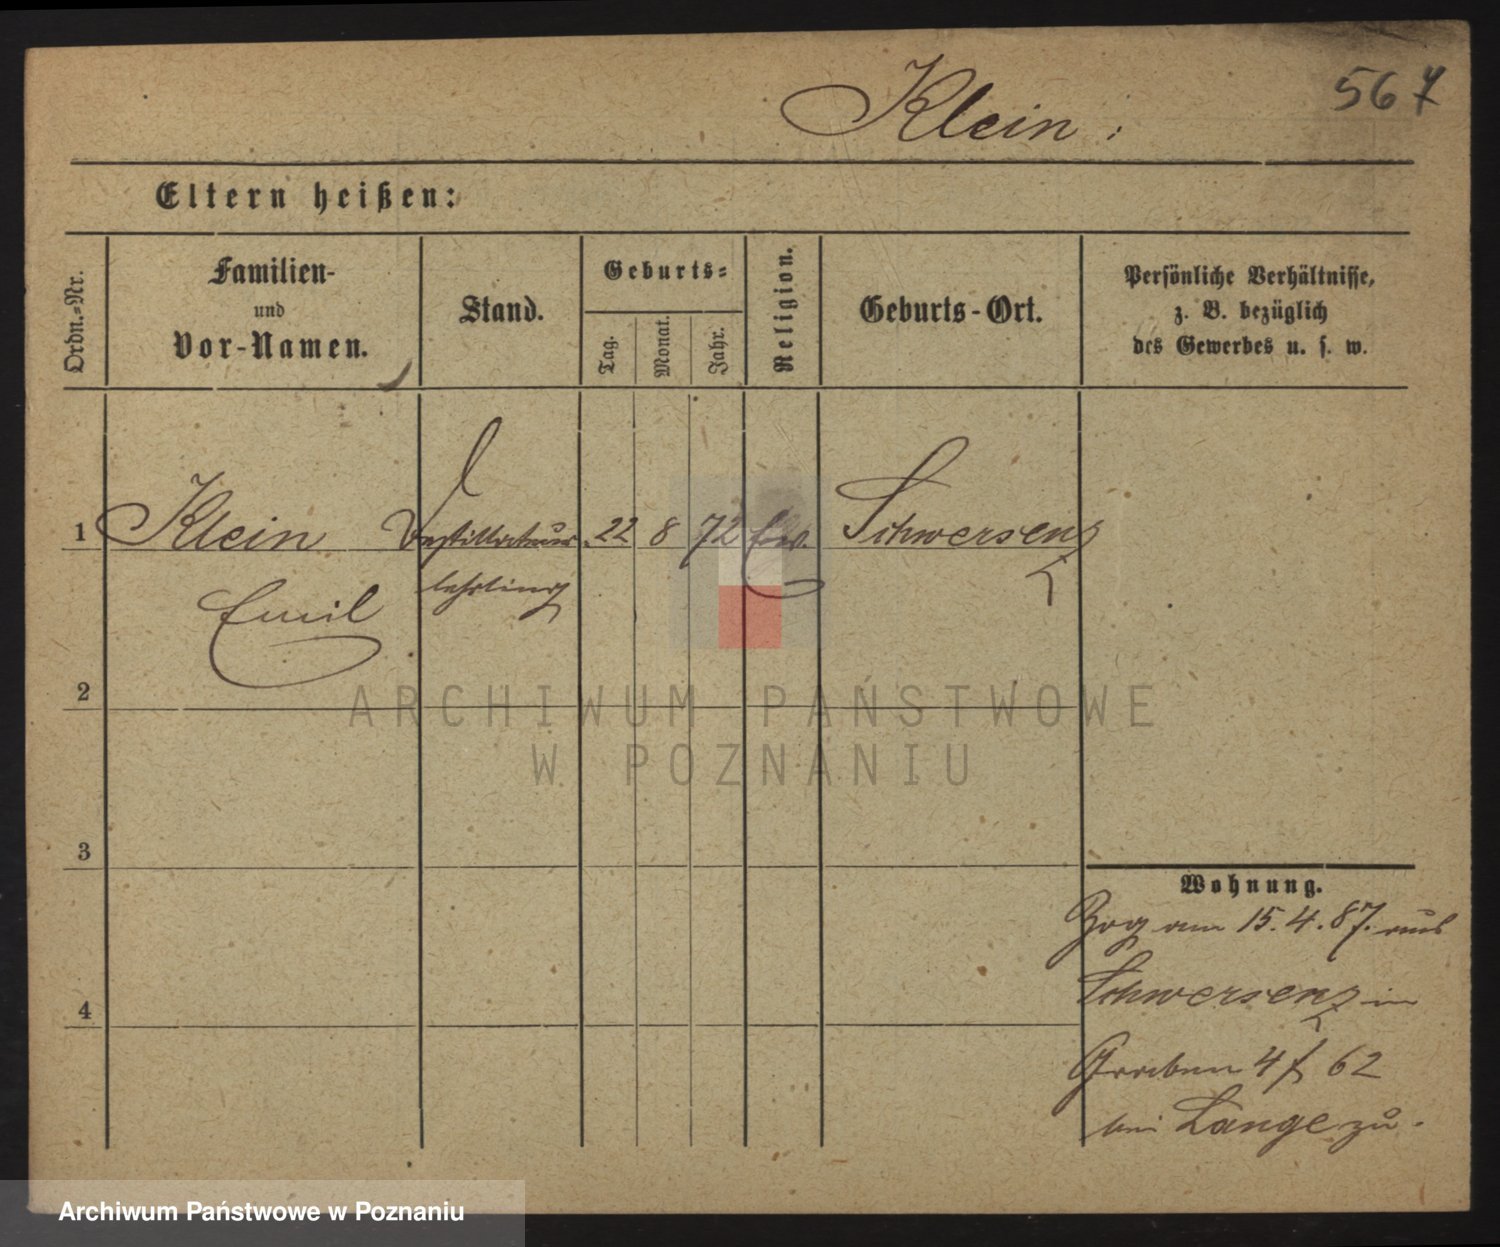 Klein.
567
Eltern heißen:
Ordn.-Nr.
Familien-
und
Vor-Namen.
Stand.
Geburts-
Tag.
Monat.
Jahr.
Religion.
Geburts-Ort.
Persönliche Verhältnisse,
z. B. bezüglich
des Gewerbes u. s. w.
1 Klein Destillateur 22 8 72 Schwersenz
Emil lehrling
2
3
4
Wohnung.
Zog am 15.4.87. aus
Schwersenz in
Graben 4 62
bei Lange zu.
ARCHIWUM PAŃSTWOWE
W POZNANIU
Archiwum Państwowe w Poznaniu